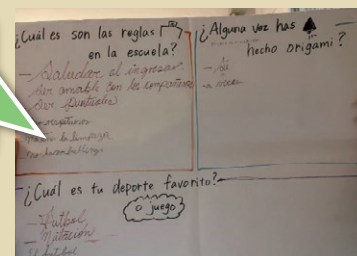 ¿Cuál es son las reglas
en la escuela?
- Saludar al ingresar
Ser amable con los compañeros
Ser puntuales
¿Alguna vez has
hecho origami?
- Sí
- a veces
¿Cuál es tu deporte favorito?
o juego
- Futbol
- Natación
El futbol